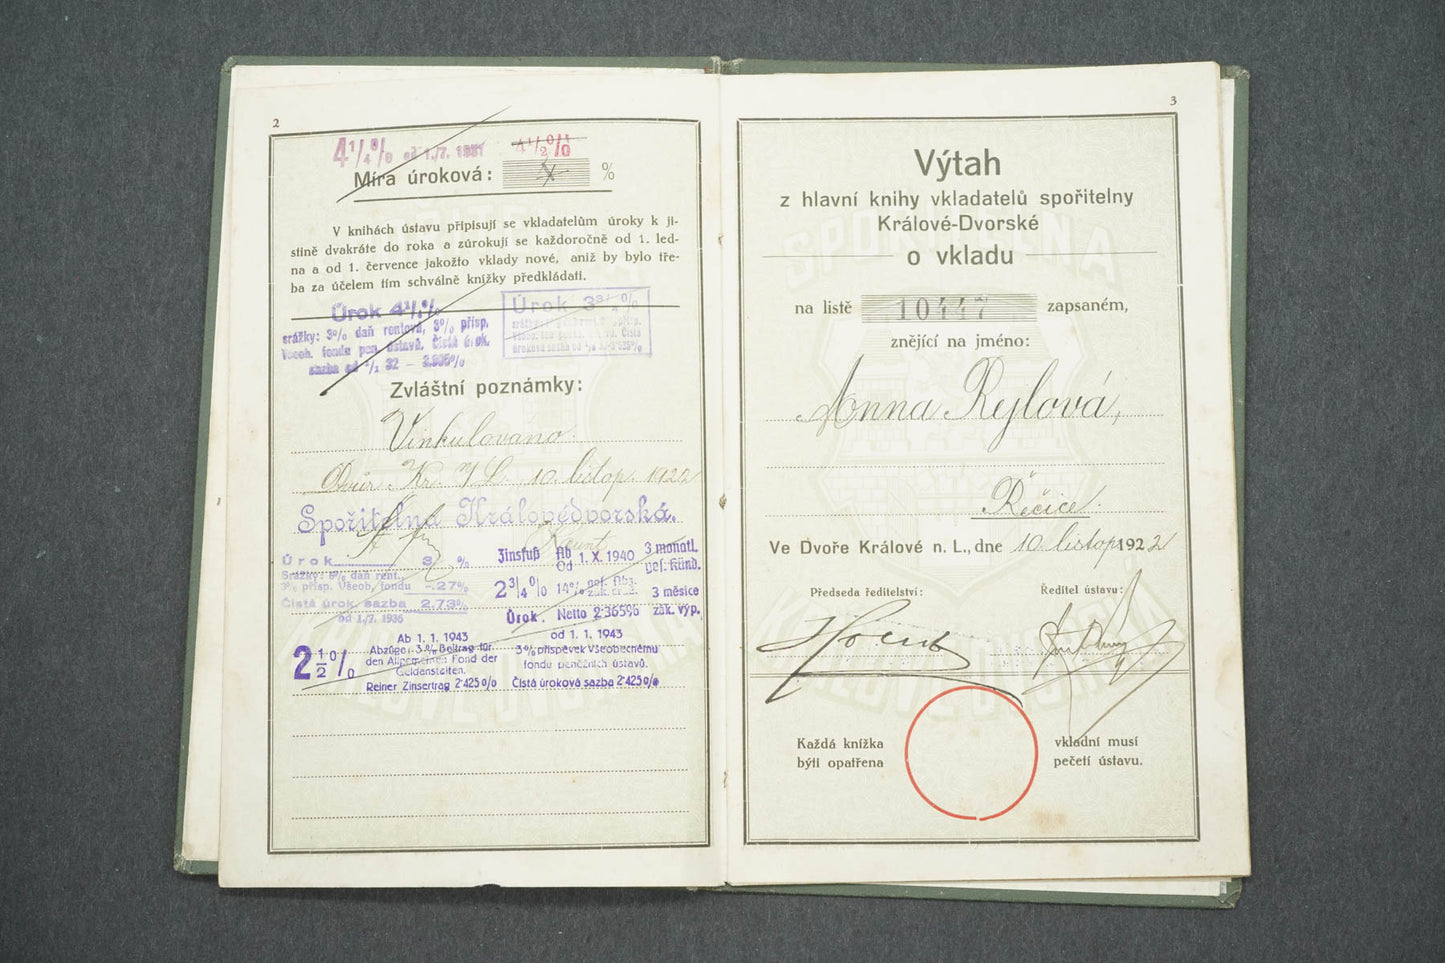 2
4¼% od 1./7. 1931
4½%
Míra úroková: %
V knihách ústavu připisují se vkladatelům úroky k ji-
stině dvakráte do roka a zúrokují se každoročně od 1. led-
na a od 1. července jakožto vklady nové, aniž by bylo tře-
ba za účelem tím schválně knížky předkládati.
Úrok 4½%
srážky: 3% daň rentová, 3% přísp.
Všeob. fondu pen. ústavů. Čistá úrok.
sazba od 1/1 32 –
Úrok 3¾%
Zvláštní poznámky:
Vinkulováno.
Dvůr Kr. n/L. 10. listop. 1922
Spořitelna Královédvorská.
Úrok 3 %
Srážky: 6% daň rent.,
3% přísp. Všeob. fondu –.27%
Čistá úrok. sazba 2.73%
od 1./7. 1936
Zinsfuß Ab
Od 1. X. 1940 3 monatl.
ges. Künd.
2¾% 14% 3 měsíce
Úrok. Netto 2·365% zák. výp.
2½%
Ab 1. 1. 1943
Abzüge: 3% Beitrag für
den Allgemeinen Fond der
Geldanstalten.
Reiner Zinsertrag 2·425%
od 1. 1. 1943
3% příspěvek Všeobecnému
fondu peněžních ústavů.
Čistá úroková sazba 2·425%
3
Výtah
z hlavní knihy vkladatelů spořitelny
Králové-Dvorské
o vkladu
na listě 10447 zapsaném,
znějící na jméno:
Anna Rejlová,
Řečice.
Ve Dvoře Králové n. L., dne 10. listop. 1922
Předseda ředitelství: Ředitel ústavu:
Každá knížka vkladní musí
býti opatřena pečetí ústavu.